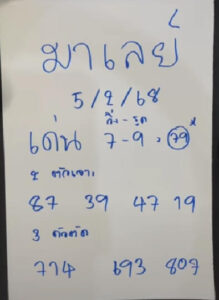 มาเลย์
5/2/68
วิ่ง-รูด
เด่น 7-9, 79*
2 ตัวเจาะ
87 39 47 19
3 ตัวตัด
714 693 807